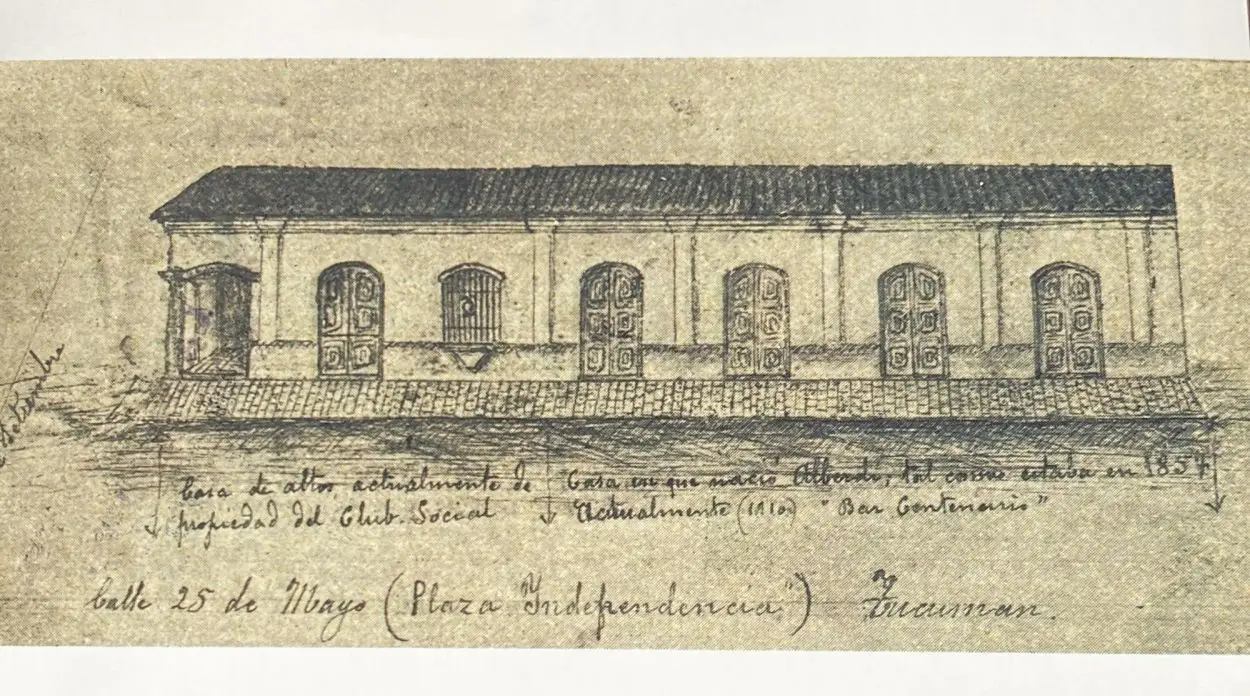 Setiembre
Casa de altos actualmente de
propiedad del Club Social
Casa en que nació Alberdi, tal como estaba en 1857
Actualmente (1910) "Bar Centenario"
Calle 25 de Mayo (Plaza Independencia") Tucuman.